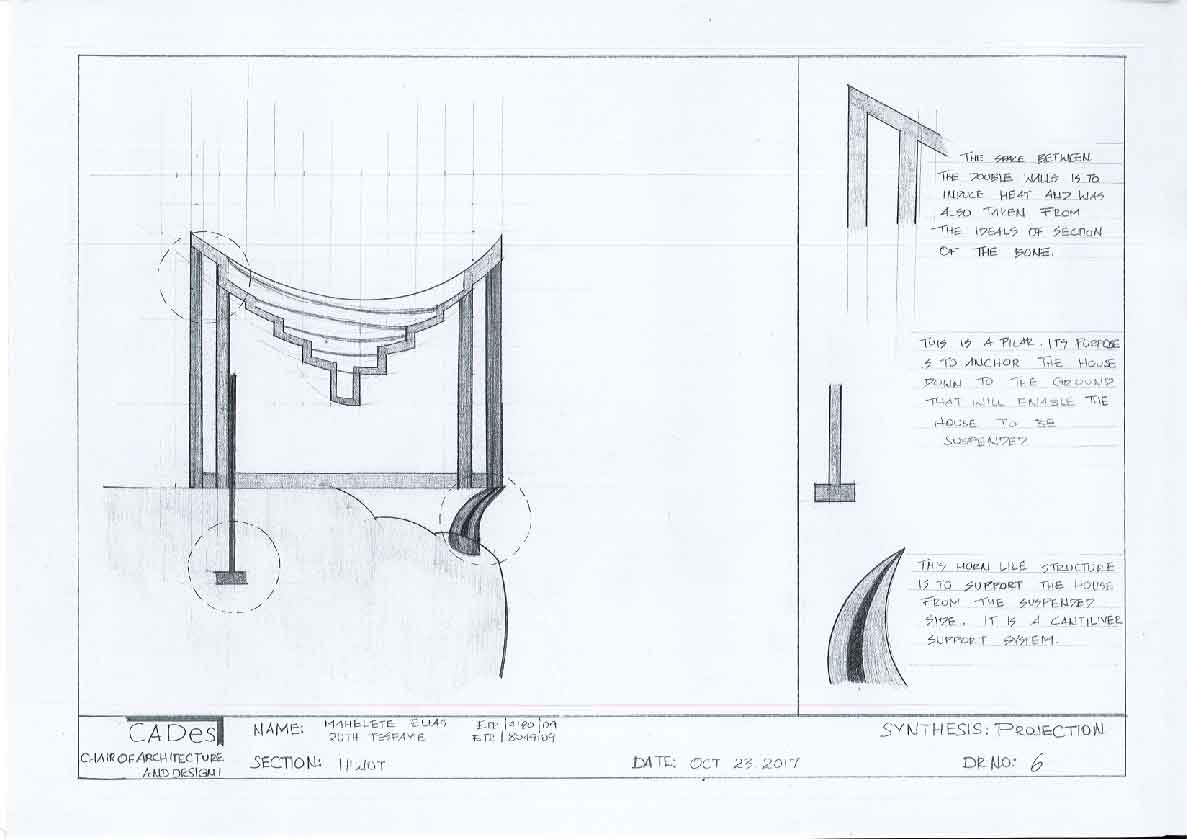 THE SPACE BETWEEN
THE DOUBLE WALLS IS TO
INDUCE HEAT AND WAS
ALSO TAKEN FROM
THE IDEALS OF SECTION
OF THE BONE.
THIS IS A PILAR. ITS PURPOSE
IS TO ANCHOR THE HOUSE
DOWN TO THE GROUND
THAT WILL ENABLE THE
HOUSE TO BE
SUSPENDED
THIS HORN LIKE STRUCTURE
IS TO SUPPORT THE HOUSE
FROM THE SUSPENDED
SIDE. IT IS A CANTILIVER
SUPPORT SYSTEM.
CADes
CHAIR OF ARCHITECTURE
AND DESIGN I
NAME: MAHELETE ELIAS
RUTH TESFAYE
SECTION:
DATE: OCT 23 2017
SYNTHESIS: PROJECTION
DR.NO: 6